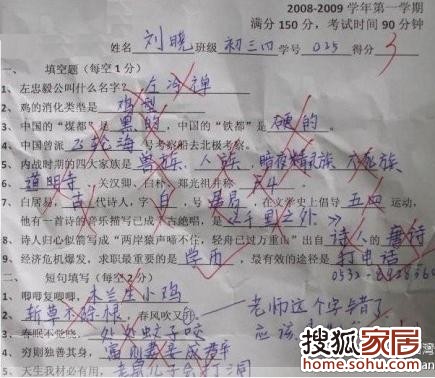 2008-2009 学年第一学期
满分 150 分，考试时间 90 分钟
姓名 刘晓 班级 初三四 学号 025 得分 3
一、 填空题（每空 1 分）
1、左忠毅公叫什么名字？ 左冷禅
2、鸡的消化类型是 鸡型
3、中国的“煤都”是 黑的 ，中国的“铁都”是 硬的 。
4、中国曾派 飞轮海 号考察船去北极考察。
5、内战时期的四大家族是 兽族、人族、暗夜精灵族 不死族
6、 道明寺 、关汉卿、白朴、郑光祖并称 F4 。
7、白居易， 古 代诗人，字 白 ，号 居易 ，在文学史上倡导 五四 运动，
他有一首诗的 音乐描写已成千古绝唱，是 《千里之外》
8、诗人归心似箭写成“两岸猿声啼不住，轻舟已过万重山”出自 诗人 的 唐诗
9、经济危机爆发，求职最重要的是 学历 ，最有效的途径是 打电话
二、 短句填写（每空 2 分）
1、唧唧复唧唧， 木兰生小鸡
2、 新草不除根 春风吹又
老师这个字错了
应该
3、春眠不觉晓， 处处蚊子咬
4、穷则独善其身， 富则妻妾成群
5、天生我材必有用， 老鼠儿子会打洞
搜狐家居
home.sohu.com